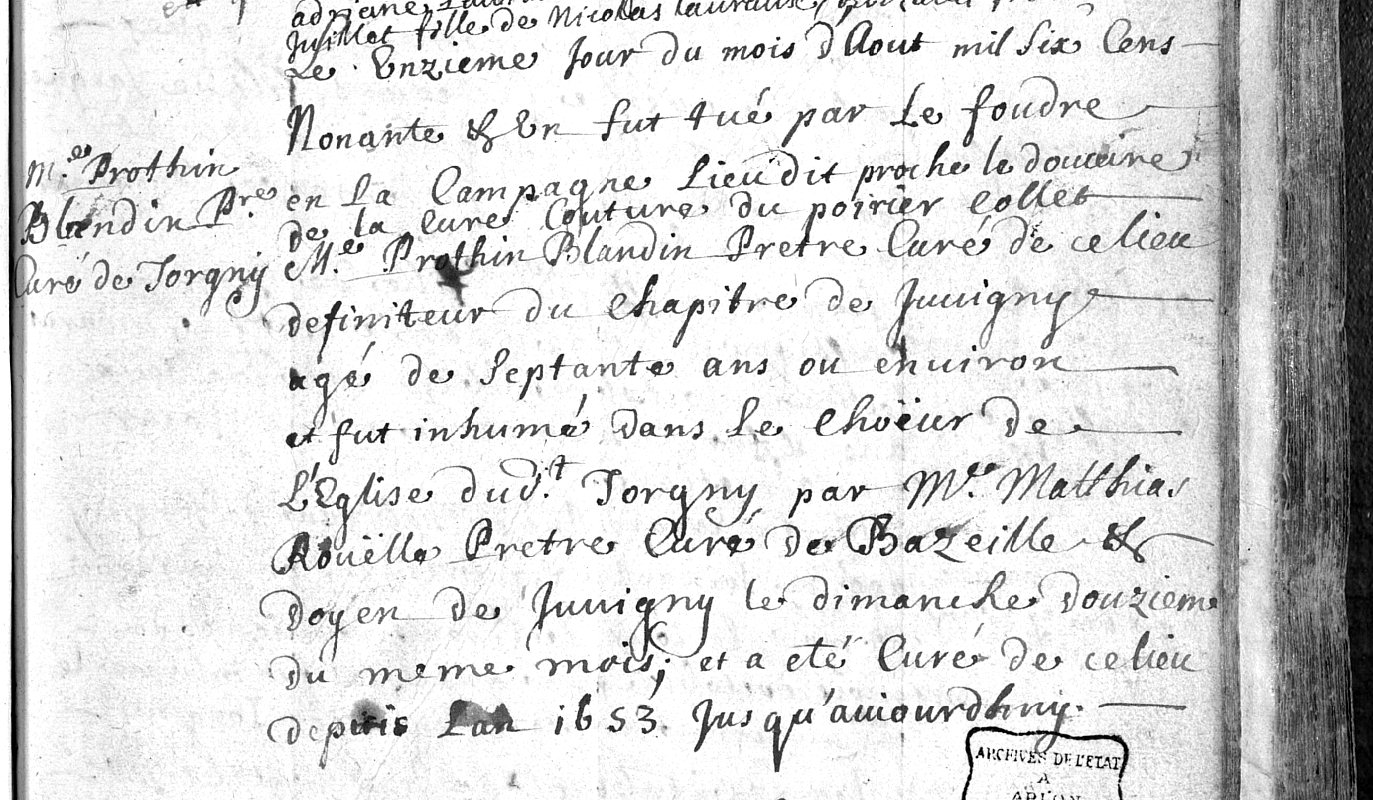 juillet fille de Nicolas
Le Enzieme Jour du mois d'Aout mil Six Cens
Nonante & En fut tué par Le foudre
en La Campagne Lieudit proche le douaire
de la Cure Couture du poirier Collet
M.e Prothin
Blandin P.re
Curé de Torgny
M.e Prothin Blandin Pretre Curé de ce lieu
definiteur du Chapitre de Juvigny
agé de Septante ans ou enuiron
et fut inhumé dans Le Choëur de
L'Eglise dud.t Torgny par M.e Matthias
Rouëlle Pretre Curé de Bazeille &
Doyen de Juvigny le dimanche douzieme
du meme mois; et a eté Curé de ce lieu
depuis Lan 1653 Jusqu'auiourdhuy.
ARCHIVES DE L'ETAT
A
ARLON